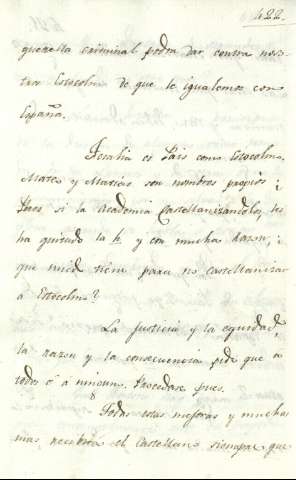 422.
querella criminal podra dar contra noso-
tros Estocolm de que le igualemos con
España.
Thealia es Pais como Estocolmo,
Mateo y Matias son nombres propios ¿
Pues si la Academia Castellanizandolos, les
ha quitado la h, y con mucha razon, ¿
que miedo tiene para no castellanizar
á Estocolmo?
La justicia y la equidad,
la razon y la consecuencia pide que á
todos ó á ninguno. Procedase pues.
Todas estas mejoras y muchas
mas, recibirá el Castellano siempre que